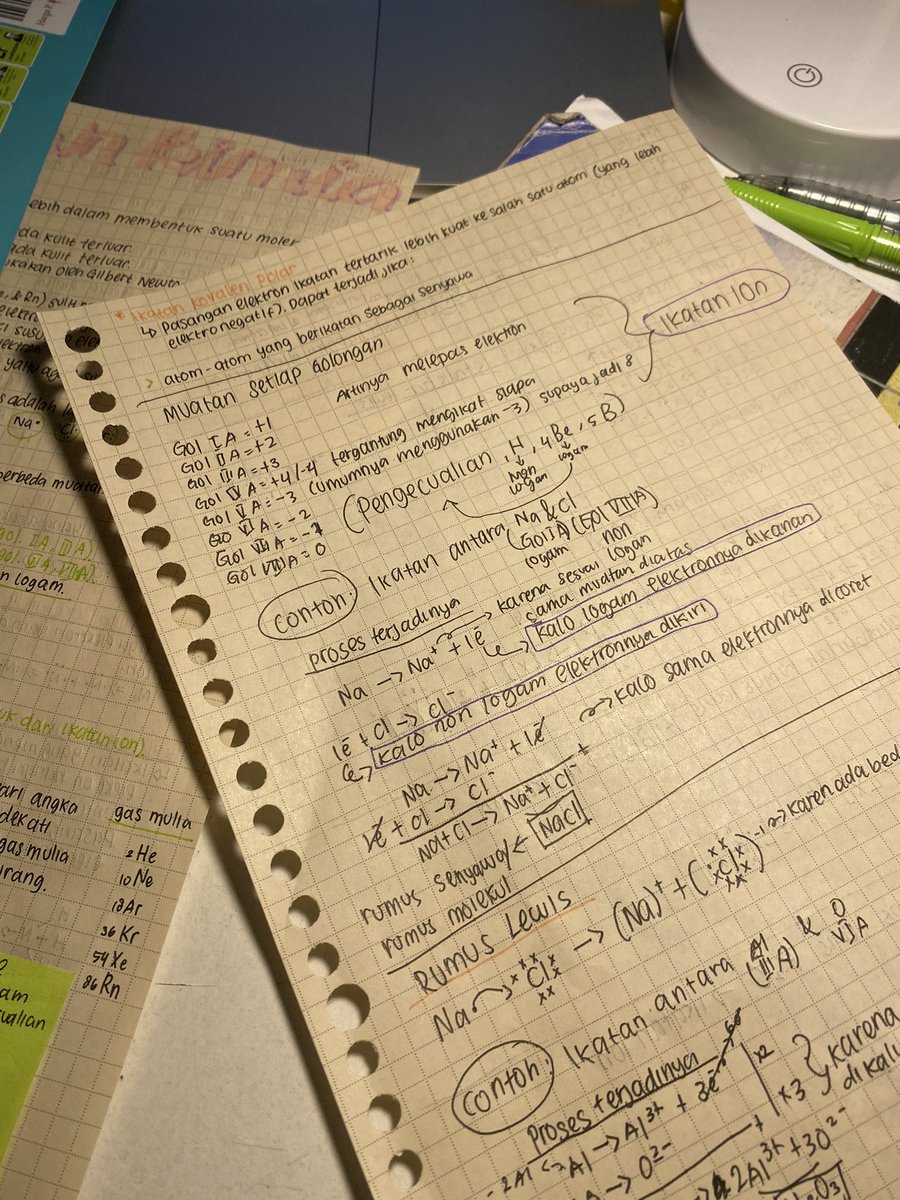 lebih dalam membentuk suatu molek
da kulit terluar.
ada kulit terluar.
ukakan oleh Gilbert Newto
& Rn) sulit
adalah
Na
Cl
berbeda muatan
gol. IA, IIA)
n logam.
uk dari Ikatan ion)
ari angka
dekati
gas mulia
urang.
gas mulia
2He
10Ne
18Ar
36Kr
54Xe
86Rn
am
ualian
* Ikatan Kovalen Polar
↳ Pasangan elektron ikatan tertarik lebih kuat ke salah satu atom (yang lebih
elektronegatif). Dapat terjadi jika:
> atom-atom yang berikatan sebagai senyawa
Muatan setiap Golongan
Ikatan Ion
Gol IA = +1 Artinya melepas elektron
Gol IIA = +2
Gol IIIA = +3
Gol IVA = +4/-4 tergantung mengikat siapa
Gol VA = -3 (umumnya menggunakan -3) supaya jadi 8
Go VIA = -2
Gol VIIA = -1
Gol VIIIA = 0
(Pengecualian, H, 4Be, 5B)
Non logam
logam
Contoh Ikatan antara Na & Cl
(Gol IA) (Gol VIIA)
logam non logam
proses terjadinya
Na → Na⁺ + 1e̅ → karena sesuai sama muatan diatas
↳ kalo logam elektronnya dikanan
1e̅ + Cl → Cl⁻
↳ kalo non logam elektronnya dikiri
Na → Na⁺ + 1e̅ → kalo sama elektronnya dicoret
1e̅ + Cl → Cl⁻ +
Na + Cl → Na⁺ + Cl⁻
rumus senyawa/ ← NaCl
rumus molekul
Rumus Lewis
Na Cl → (Na)⁺ + (Cl)⁻¹ → karen ada bed
Contoh Ikatan antara Al (IIIA) & O VIA
Proses terjadinya
2Al Al → Al³⁺ + 3e̅ x2
→ O²⁻ x3
karena
dikali
2Al³⁺ + 3O²⁻